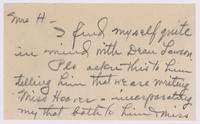 Mrs H-
I find myself quite
in mind with Dean Lawson
Pls acknow this to him
telling him that we are writing
Miss Hoover - incorporating
my that both to him & Miss